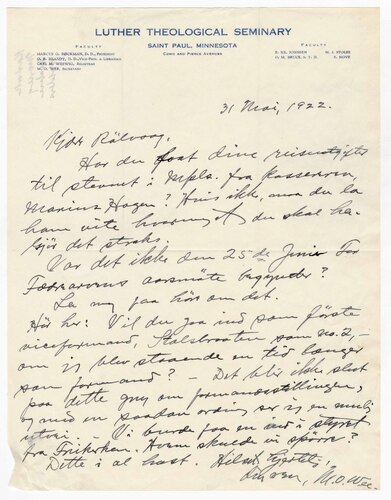 LUTHER THEOLOGICAL SEMINARY
SAINT PAUL, MINNESOTA
COMO AND PIERCE AVENUES
FACULTY
MARCUS O. BÖCKMAN, D. D., PRESIDENT
O. E. BRANDT, D. D., VICE-PRES. & LIBRARIAN
CARL M. WESWIG, REGISTRAR
M. O. WEE, SECRETARY
FACULTY
E. KR. JOHNSEN
O. M. BRUCE, S. T. D.
M. J. STOLEE
E. HOVE
31 Mai, 1922.
Kjære Rölvaag.
Har du faat dine reiseutgifter
til stevnet i Mpls. fra kassereren,
Marius Hagen? Hvis ikke, maa du la
ham vite hvormeget du skal ha.
Gjör det straks.
Var det ikke den 25de Juni For
Fædrearvens aarsmöte begynder?
La mig faa höre om det.
Hör her: Vil du gaa ind som förste
viceformand, som no. 2, –
om jeg blev staaende en tid længer
som formand? – Det blir ikke slut
paa dette om formandsstillingen,
med en saadan ordning ser jeg en mulig
utvei. Vi burde faa en ind i styret
fra Frikirken. Hvem skulde vi spörre?
Dette i al hast. Hilsen
M. O. Wee.